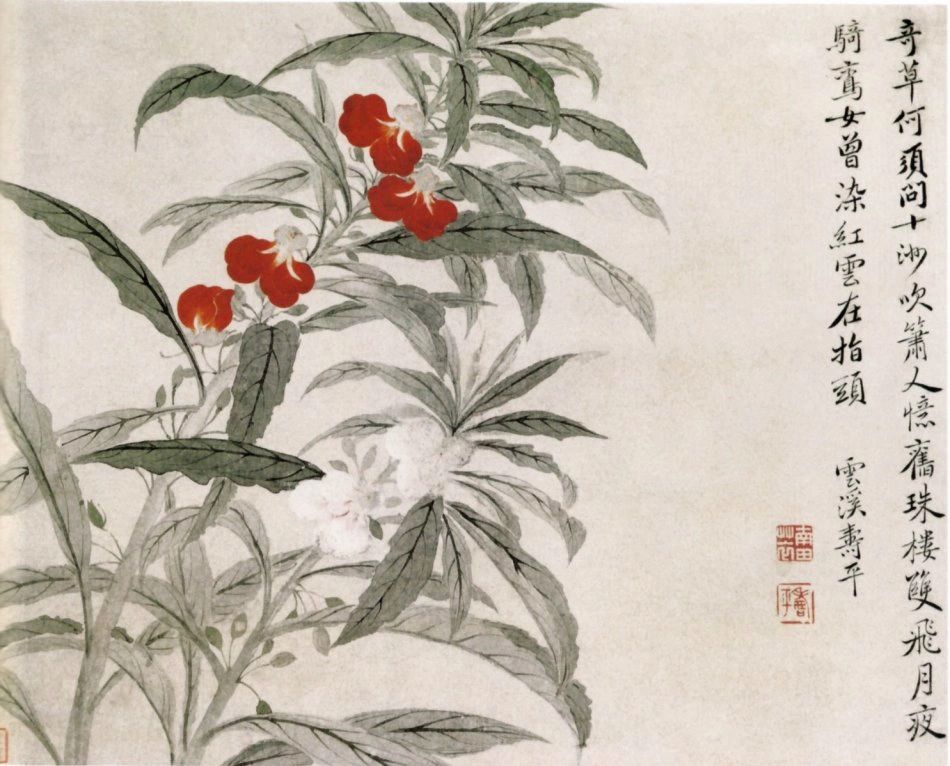 奇草何須問十洲吹簫人憶舊珠楼雙飛月夜
騎鸞女曾染紅雲在指頭 雲溪壽平
南田艸衣
壽平